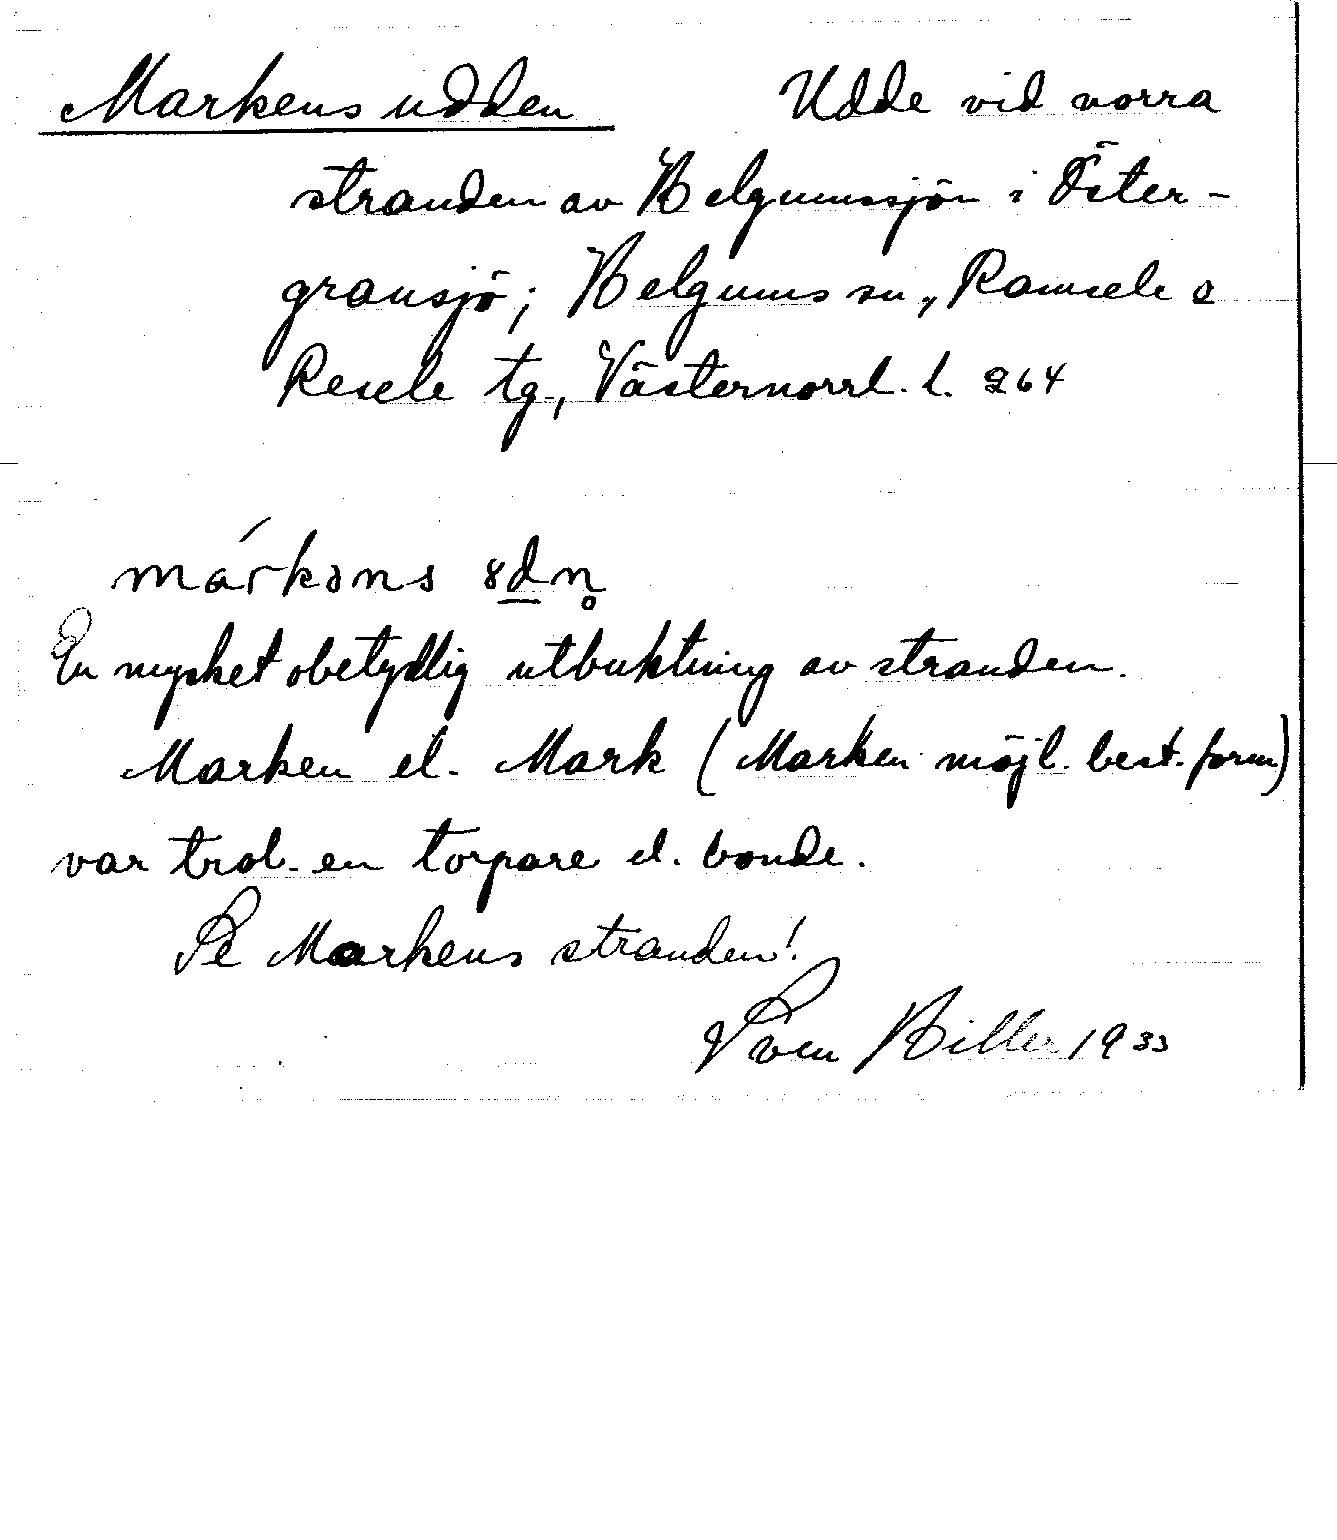 Markens udden Udde vid norra
stranden av Helgumssjön i Öster-
gransjö; Helgums sn, Ramsele o
Resele tg., Västernorrl. l. 264
márkəns 8d̲n̥
En mycket obetydlig utbuktning av stranden.
Marken el. Mark (Marken möjl. best. form)
var trol. en torpare el. bonde.
Se Markens stranden!
Sven Hiller 1933